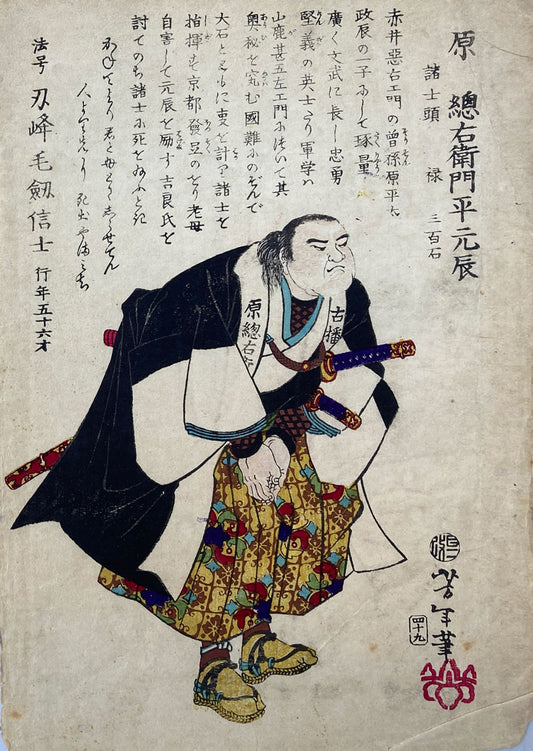 原 總右衛門平元辰
諸士頭 禄 三百石
赤井惡右エ門の曾孫原平太
政辰の一子にして琢量
廣く文武に長じ忠勇
堅義の英士たり軍学ハ
山鹿甚五左エ門について其
奥秘を究む國難にのぞんで
大石とともに吏を計り諸士を
指揮す京都發足のをり老母
自害して元辰を励す吉良氏を
討てのち諸士に死を給ふとき
法号 刃峰毛劔信士 行年五十六才
古播
原總右衛
芳年筆
四十九